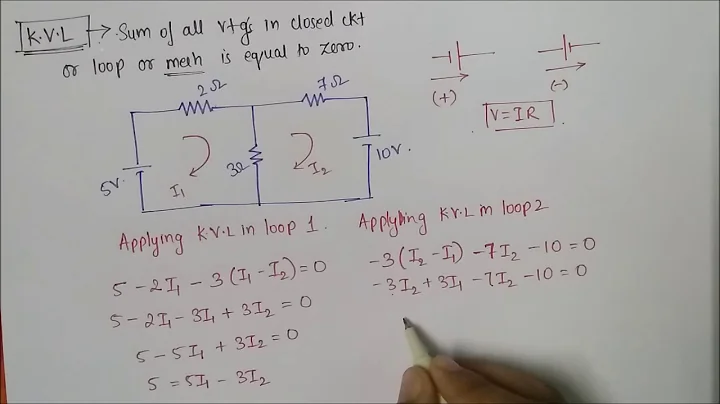 K.V.L → Sum of all vtg's in closed ckt
or loop or mesh is equal to zero.
2Ω
7Ω
5V
3Ω
10V.
I₁
I₂
(+)
(-)
V=IR
Applying K.V.L in loop 1.
5 - 2I₁ - 3(I₁ - I₂) = 0
5 - 2I₁ - 3I₁ + 3I₂ = 0
5 - 5I₁ + 3I₂ = 0
5 = 5I₁ - 3I₂
Applyling K.V.L in loop 2
-3(I₂ - I₁) - 7I₂ - 10 = 0
-3I₂ + 3I₁ - 7I₂ - 10 = 0